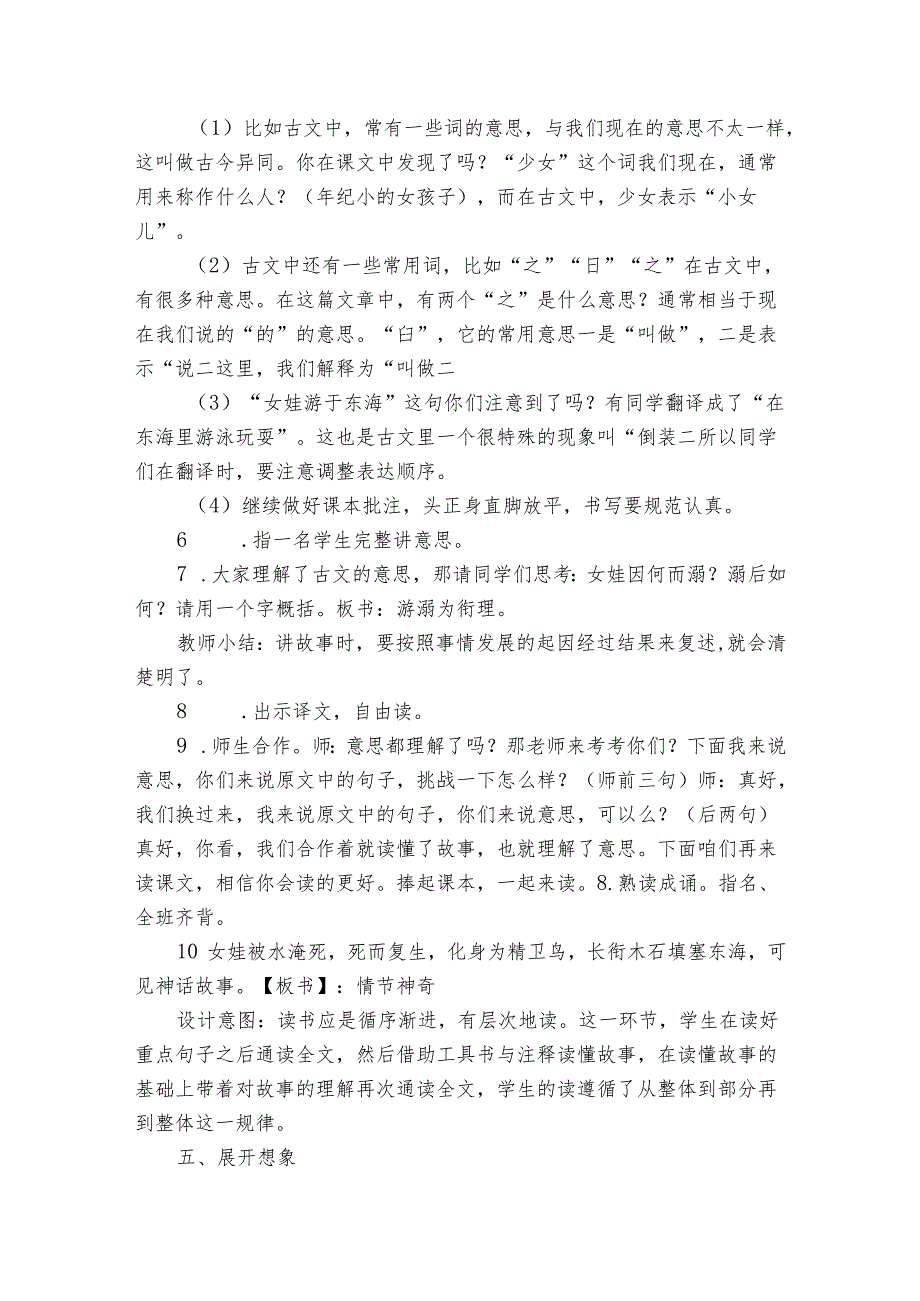 （1）比如古文中，常有一些词的意思，与我们现在的意思不太一样，
这叫做古今异同。你在课文中发现了吗？“少女”这个词我们现在，通常
用来称作什么人？（年纪小的女孩子），而在古文中，少女表示“小女
儿”。
（2）古文中还有一些常用词，比如“之”“日”“之”在古文中，
有很多种意思。在这篇文章中，有两个“之”是什么意思？通常相当于现
在我们说的“的”的意思。“臼”，它的常用意思一是“叫做”，二是表
示“说二这里，我们解释为“叫做二
（3）“女娃游于东海”这句你们注意到了吗？有同学翻译成了“在
东海里游泳玩耍”。这也是古文里一个很特殊的现象叫“倒装二所以同学
们在翻译时，要注意调整表达顺序。
（4）继续做好课本批注，头正身直脚放平，书写要规范认真。
6 .指一名学生完整讲意思。
7 .大家理解了古文的意思，那请同学们思考：女娃因何而溺？溺后如
何？请用一个字概括。板书：游溺为衔理。
教师小结：讲故事时，要按照事情发展的起因经过结果来复述,就会清
楚明了。
8 .出示译文，自由读。
9 .师生合作。师：意思都理解了吗？那老师来考考你们？下面我来说
意思，你们来说原文中的句子，挑战一下怎么样？（师前三句）师：真好，
我们换过来，我来说原文中的句子，你们来说意思，可以么？（后两句）
真好，你看，我们合作着就读懂了故事，也就理解了意思。下面咱们再来
读课文，相信你会读的更好。捧起课本，一起来读。8.熟读成诵。指名、
全班齐背。
10 女娃被水淹死，死而复生，化身为精卫鸟，长衔木石填塞东海，可
见神话故事。【板书】：情节神奇
设计意图：读书应是循序渐进，有层次地读。这一环节，学生在读好
重点句子之后通读全文，然后借助工具书与注释读懂故事，在读懂故事的
基础上带着对故事的理解再次通读全文，学生的读遵循了从整体到部分再
到整体这一规律。
五、展开想象